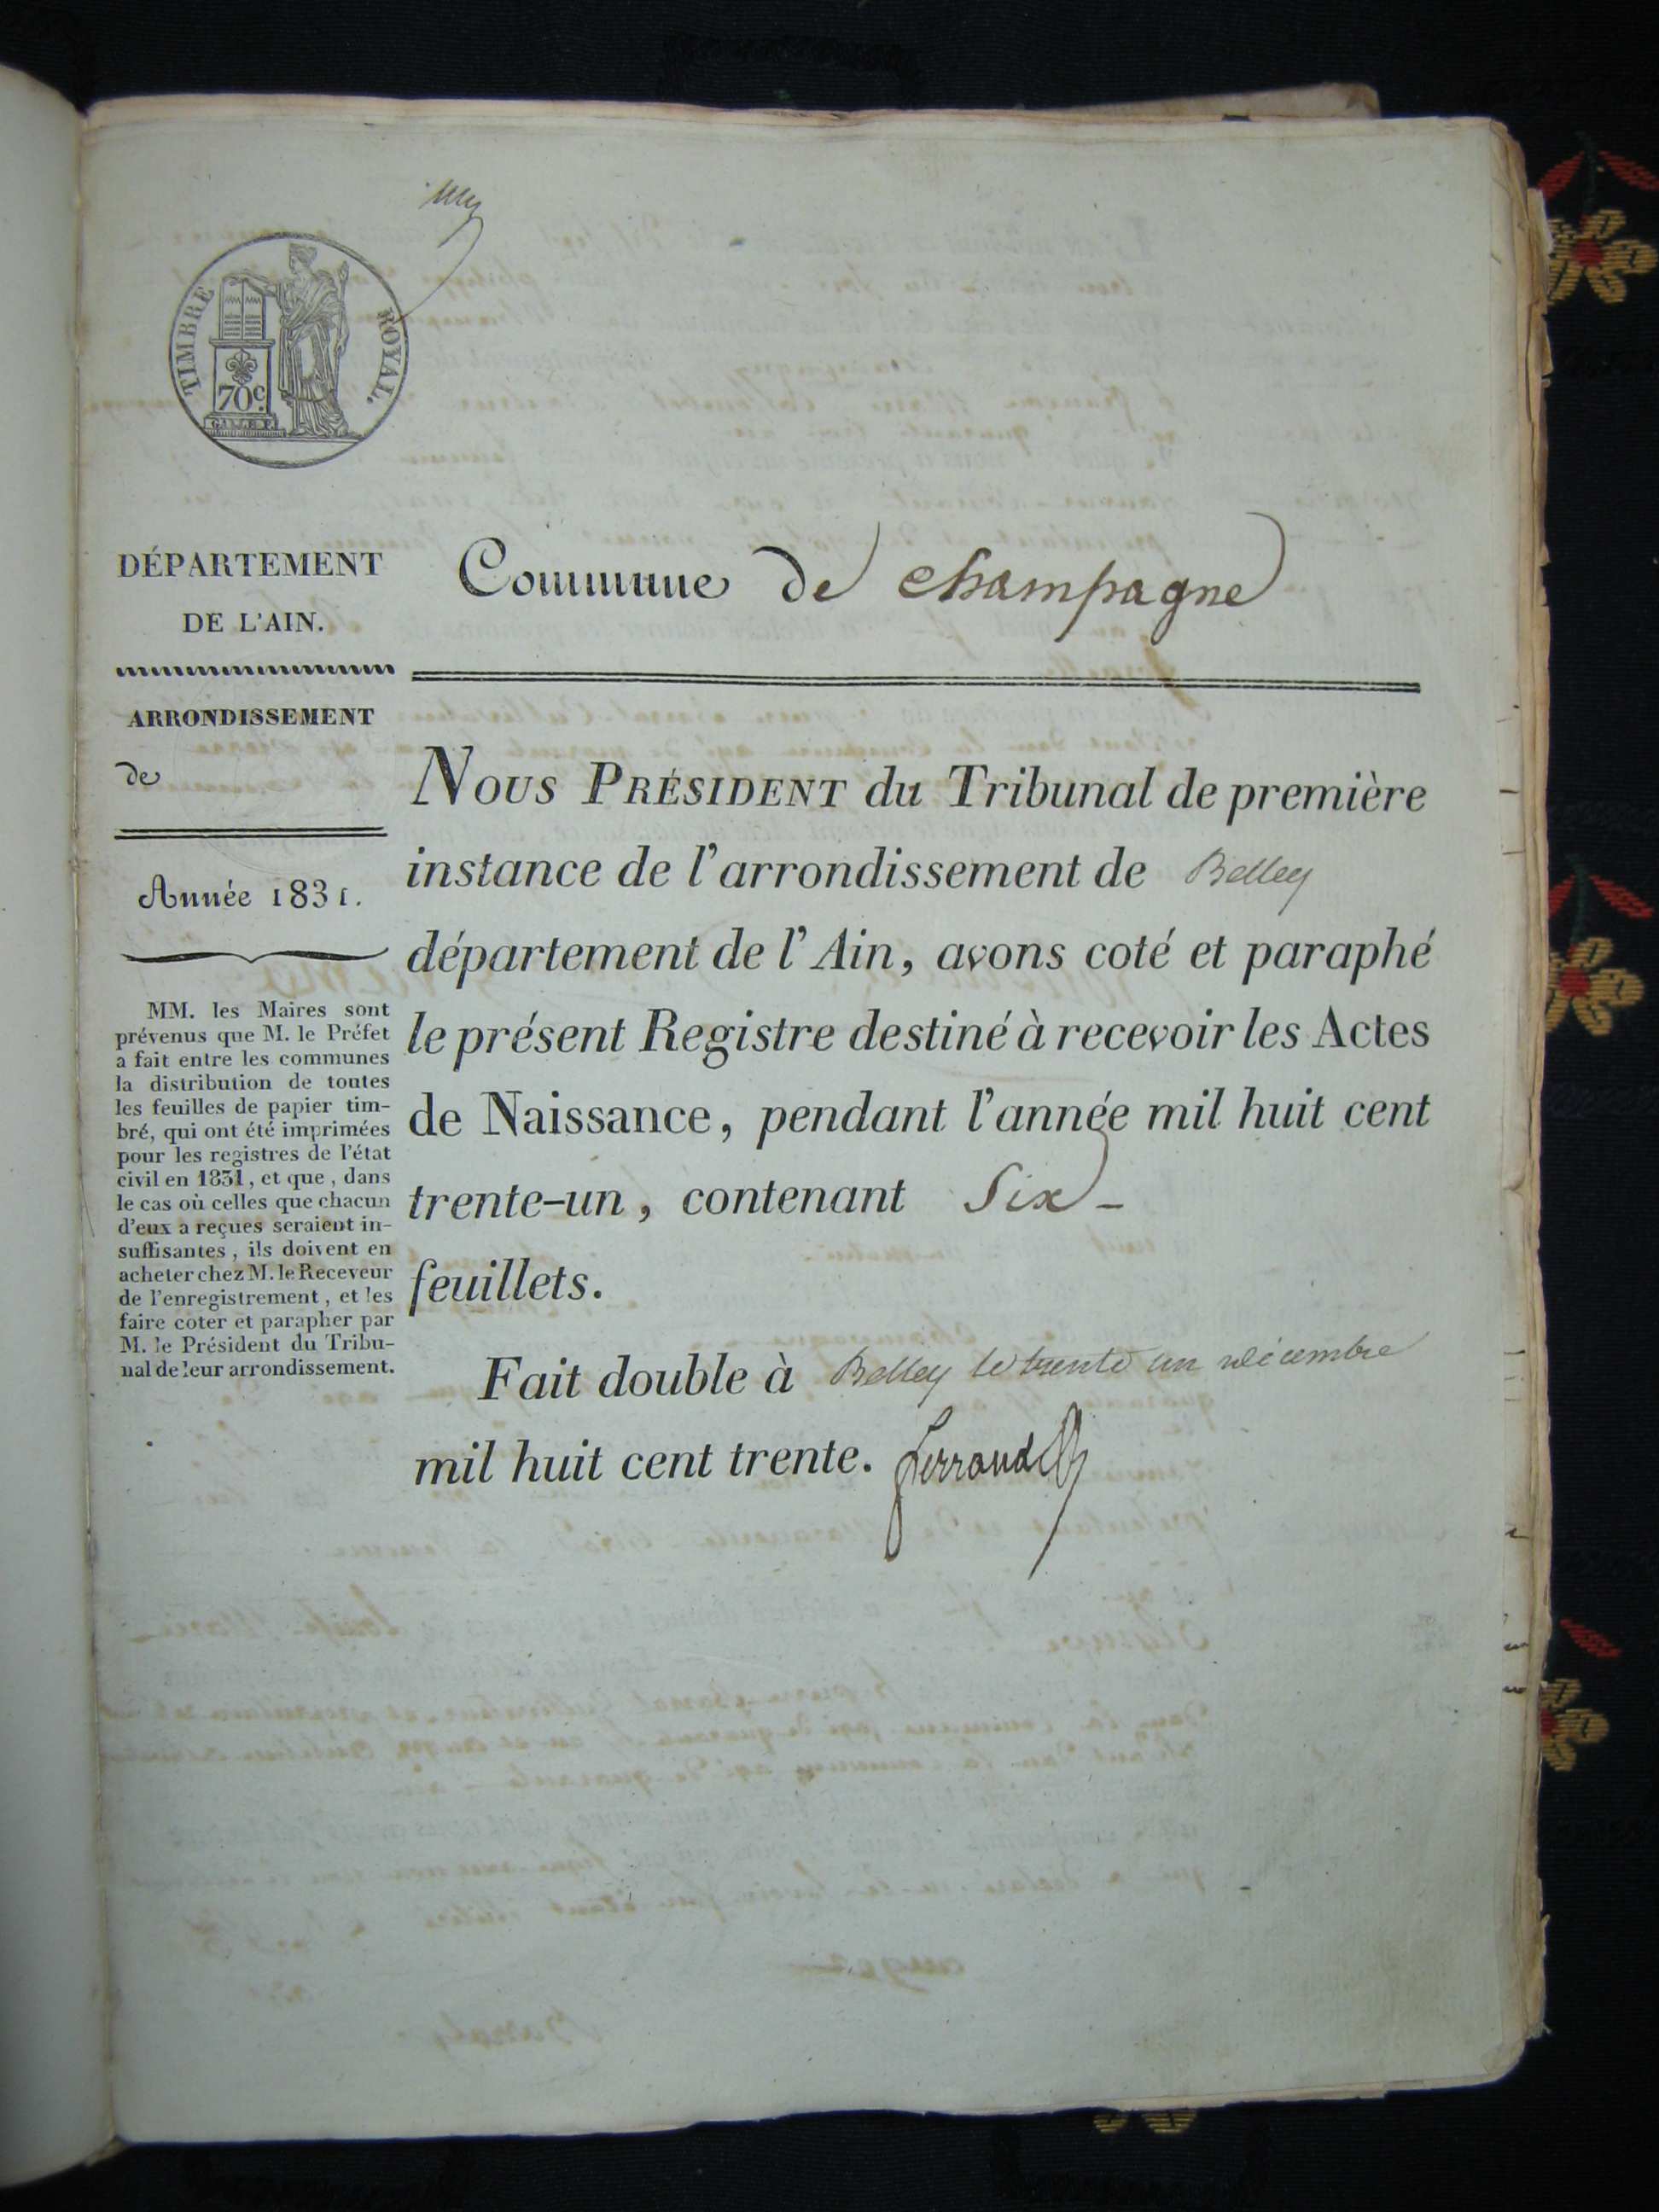 TIMBRE ROYAL.
70c.
DÉPARTEMENT
DE L'AIN.
ARRONDISSEMENT
de
Année 1831.
MM. les Maires sont
prévenus que M. le Préfet
a fait entre les communes
la distribution de toutes
les feuilles de papier tim-
bré, qui ont été imprimées
pour les registres de l'état
civil en 1831, et que, dans
le cas où celles que chacun
d'eux a reçues seraient in-
suffisantes, ils doivent en
acheter chez M. le Receveur
de l'enregistrement, et les
faire coter et parapher par
M. le Président du Tribu-
nal de leur arrondissement.
Commune de champagne
NOUS PRÉSIDENT du Tribunal de première
instance de l'arrondissement de Belley
département de l'Ain, avons coté et paraphé
le présent Registre destiné à recevoir les Actes
de Naissance, pendant l'année mil huit cent
trente-un, contenant Six -
feuillets.
Fait double à Belley le trente un décembre
mil huit cent trente. Ferrand